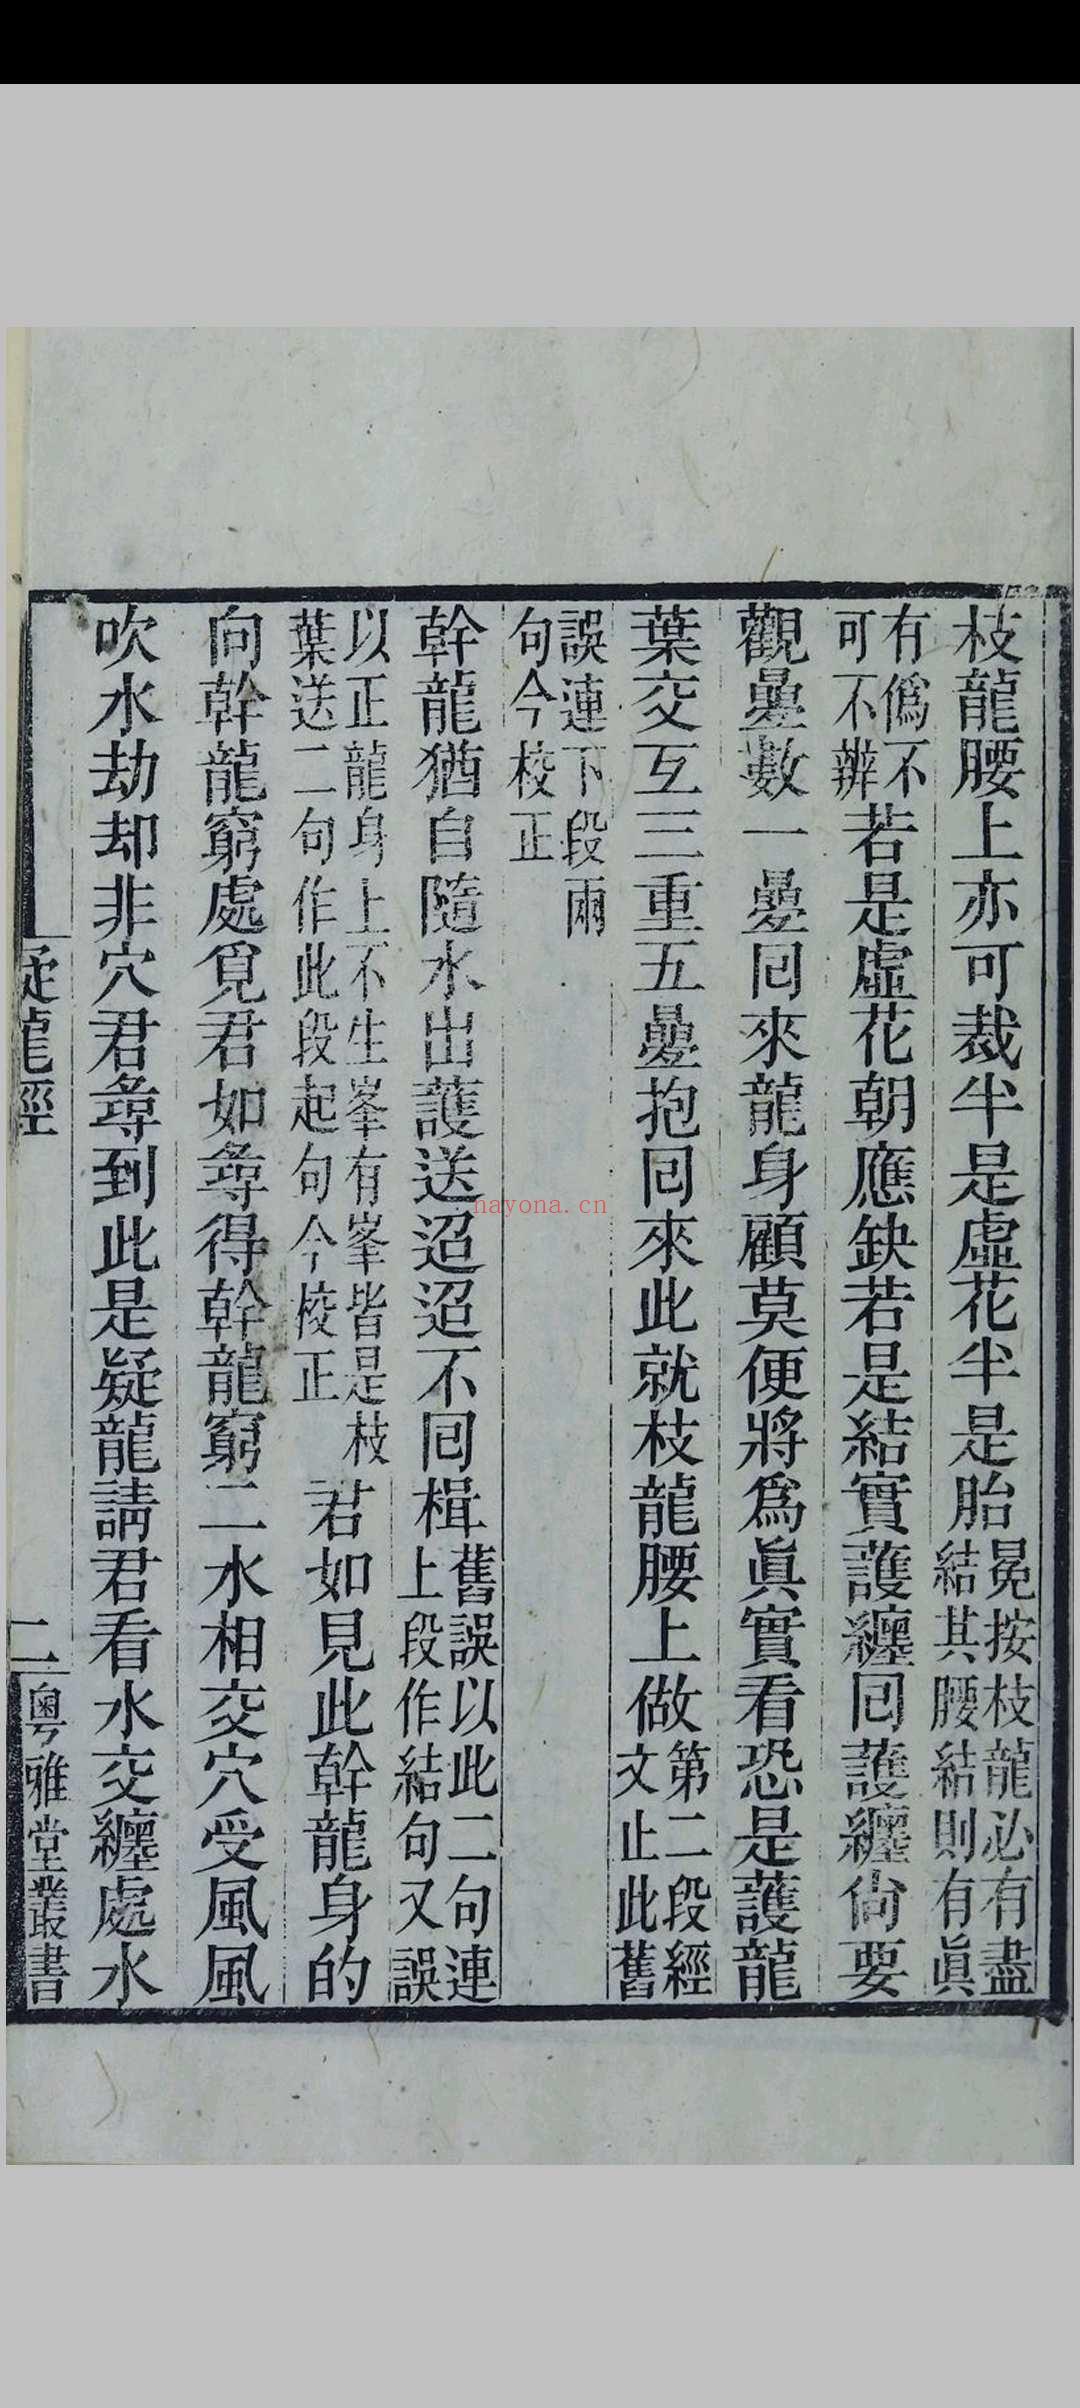 枝龍腰上亦可裁半是虛花半是胎冕按枝龍必有盡結其腰結則有眞
有僞不可不辨若是虛花朝應缺若是結實護纏囘護纏尙要
觀疊數一疊囘來龍身顧莫便將爲眞實看恐是護龍
葉交互三重五疊抱囘來此就枝龍腰上做第二段經文止此舊
誤連下段兩句今校正
幹龍猶自隨水出護送迢迢不囘楫舊誤以此二句連上段作結句又誤
以正龍身上不生峯有峯皆是枝葉送二句作此段起句今校正君如見此幹龍身的
向幹龍窮處覓君如尋得幹龍窮二水相交穴受風風
吹水劫却非穴君尋到此是疑龍請君看水交纏處水
疑龍經
二
粵雅堂叢書
nayona.cn